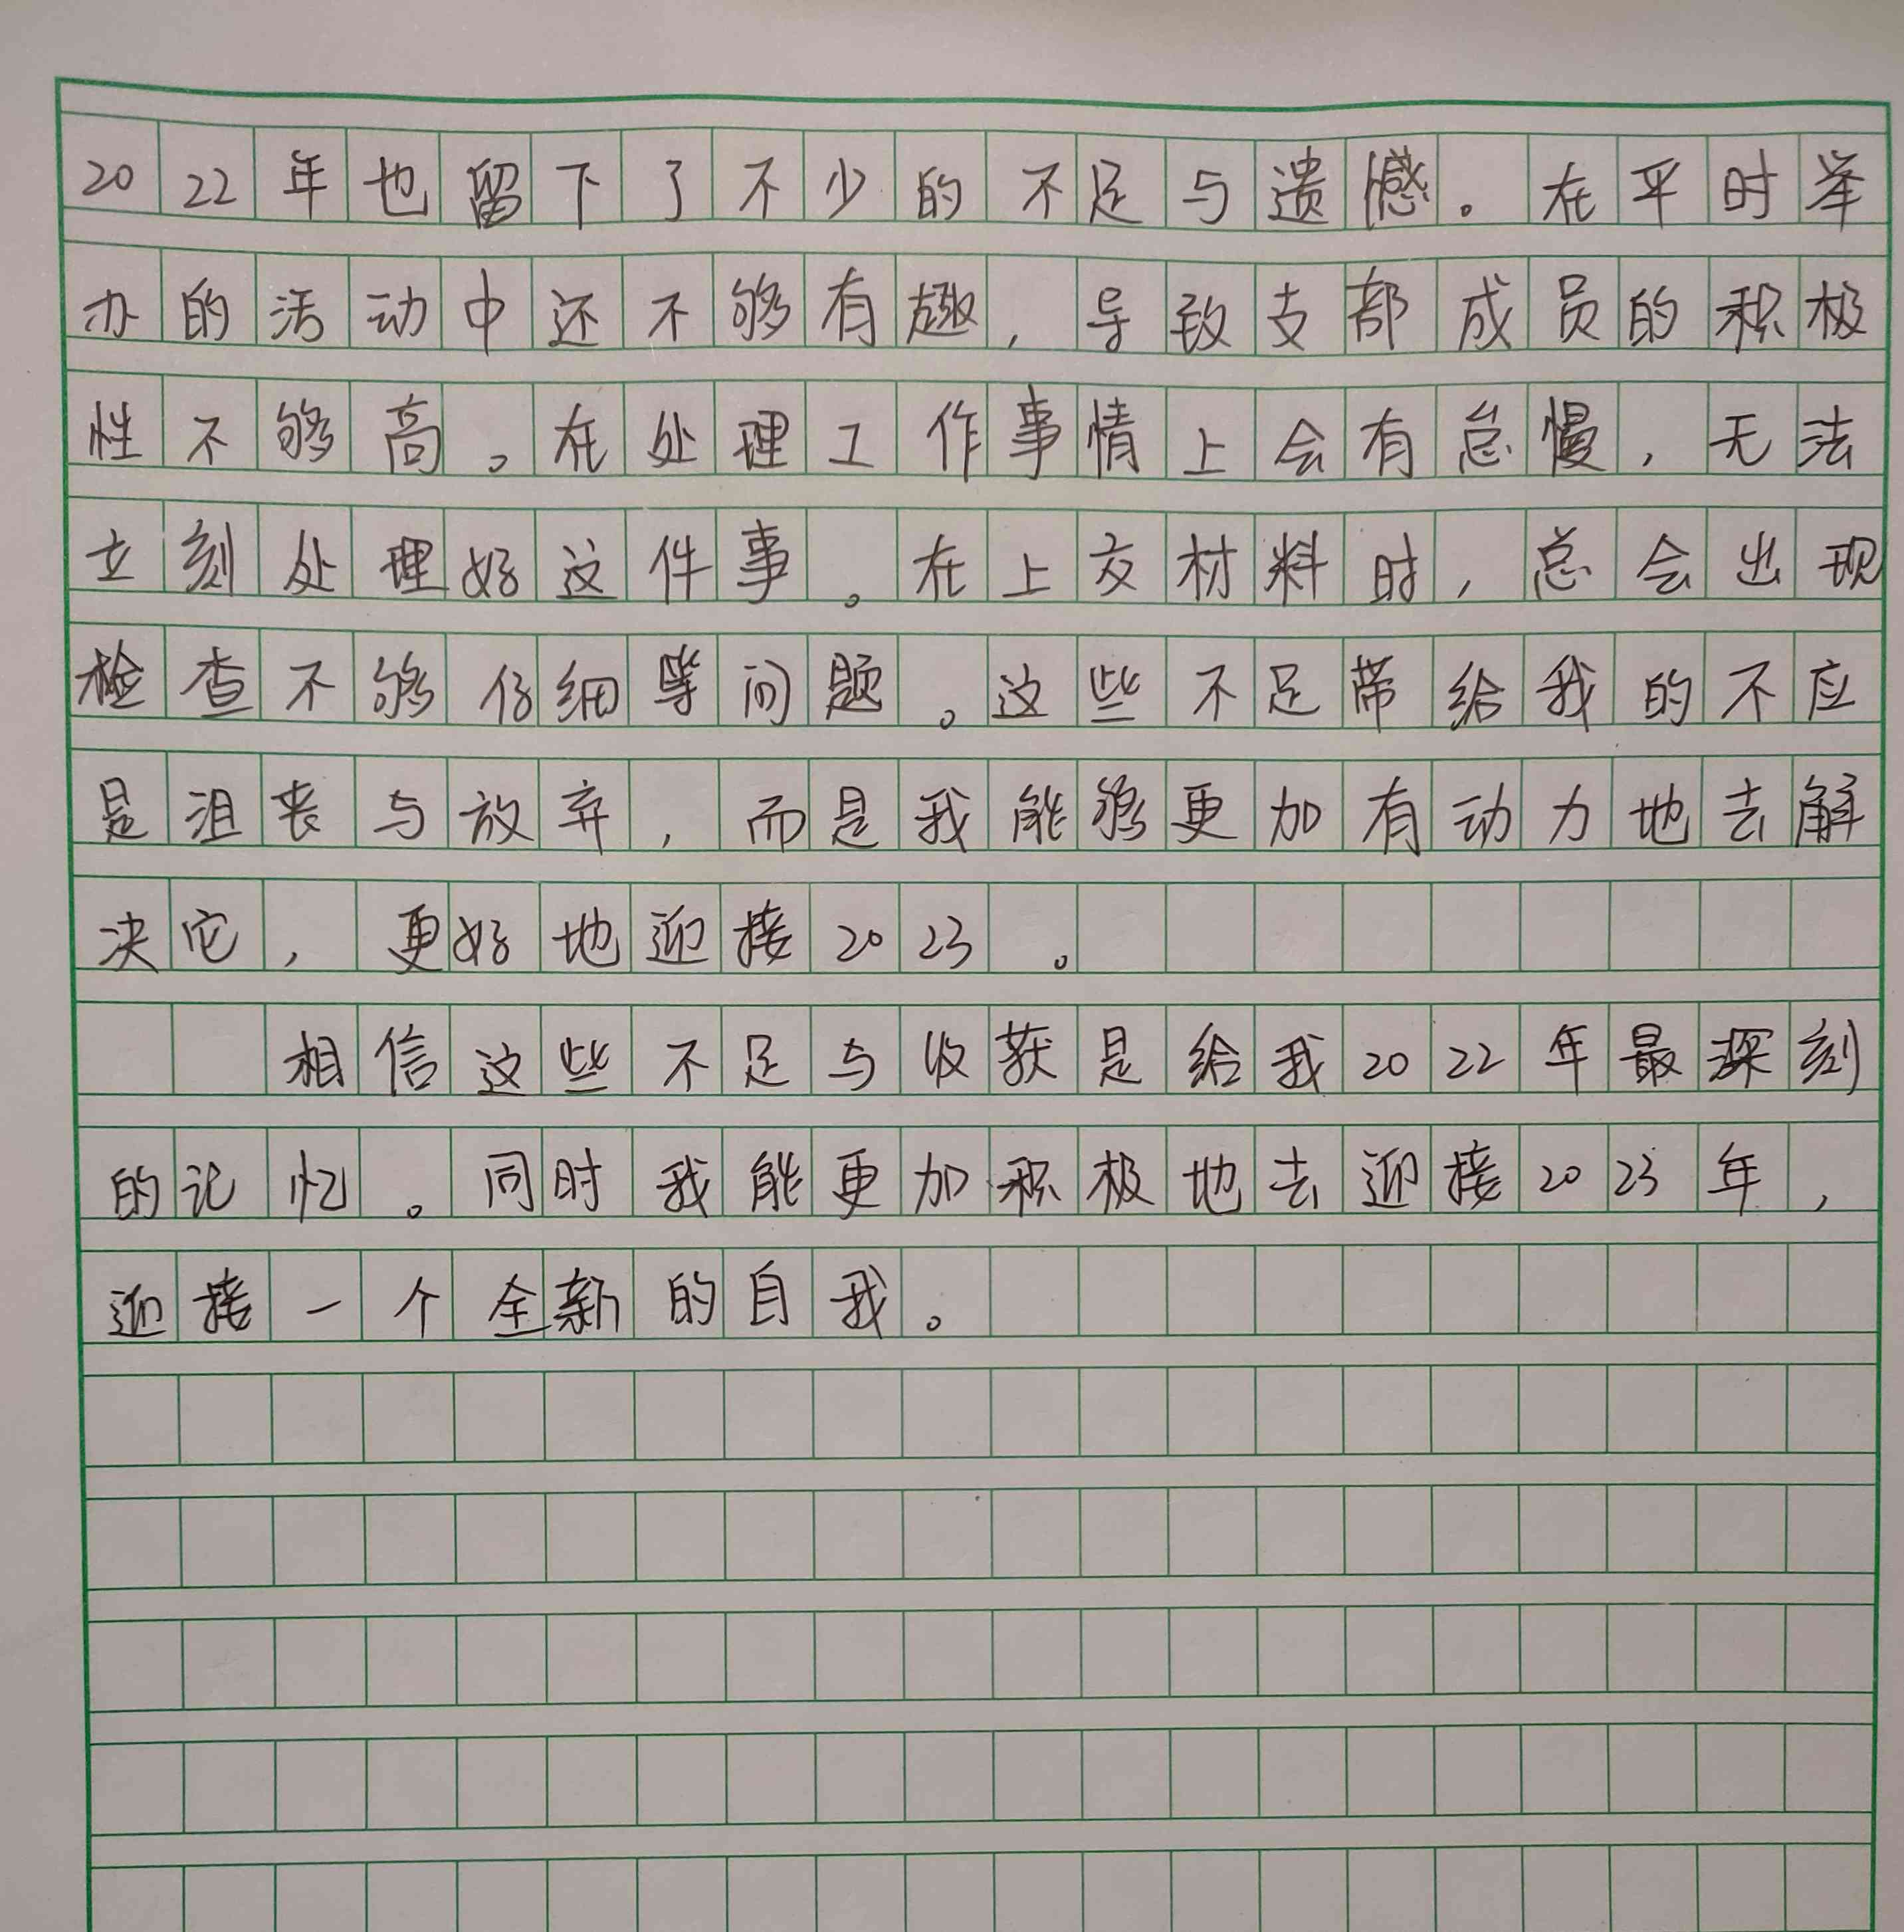 2022年也留下了不少的不足与遗憾。在平时举
办的活动中还不够有趣,导致支部成员的积极
性不够高。在处理工作事情上会有怠慢,无法
立刻处理好这件事。在上交材料时,总会出现
检查不够仔细等问题。这些不足带给我的不应
是沮丧与放弃,而是我能够更加有动力地去解
决它,更好地迎接2023。
相信这些不足与收获是给我2022年最深刻
的记忆。同时我能更加积极地去迎接2023年,
迎接一个全新的自我。